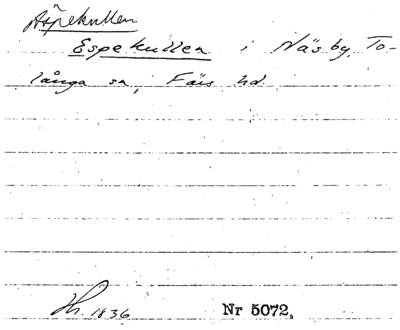 Äspekullen
Espekullen i Näsby, To-
långa sn, Färs hd.
Hs. 1836
Nr 5072.